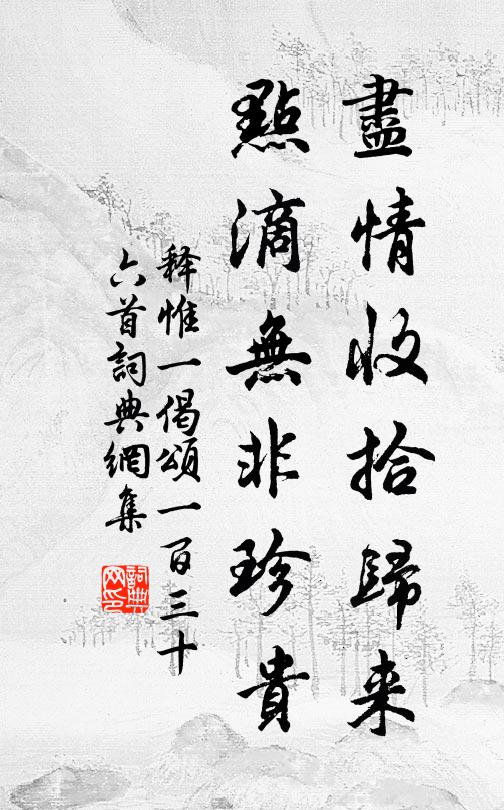 盡情收拾歸来
點滴無非珍貴
釋惟一偈頌一百三十
六首詞典網集
詞典网印